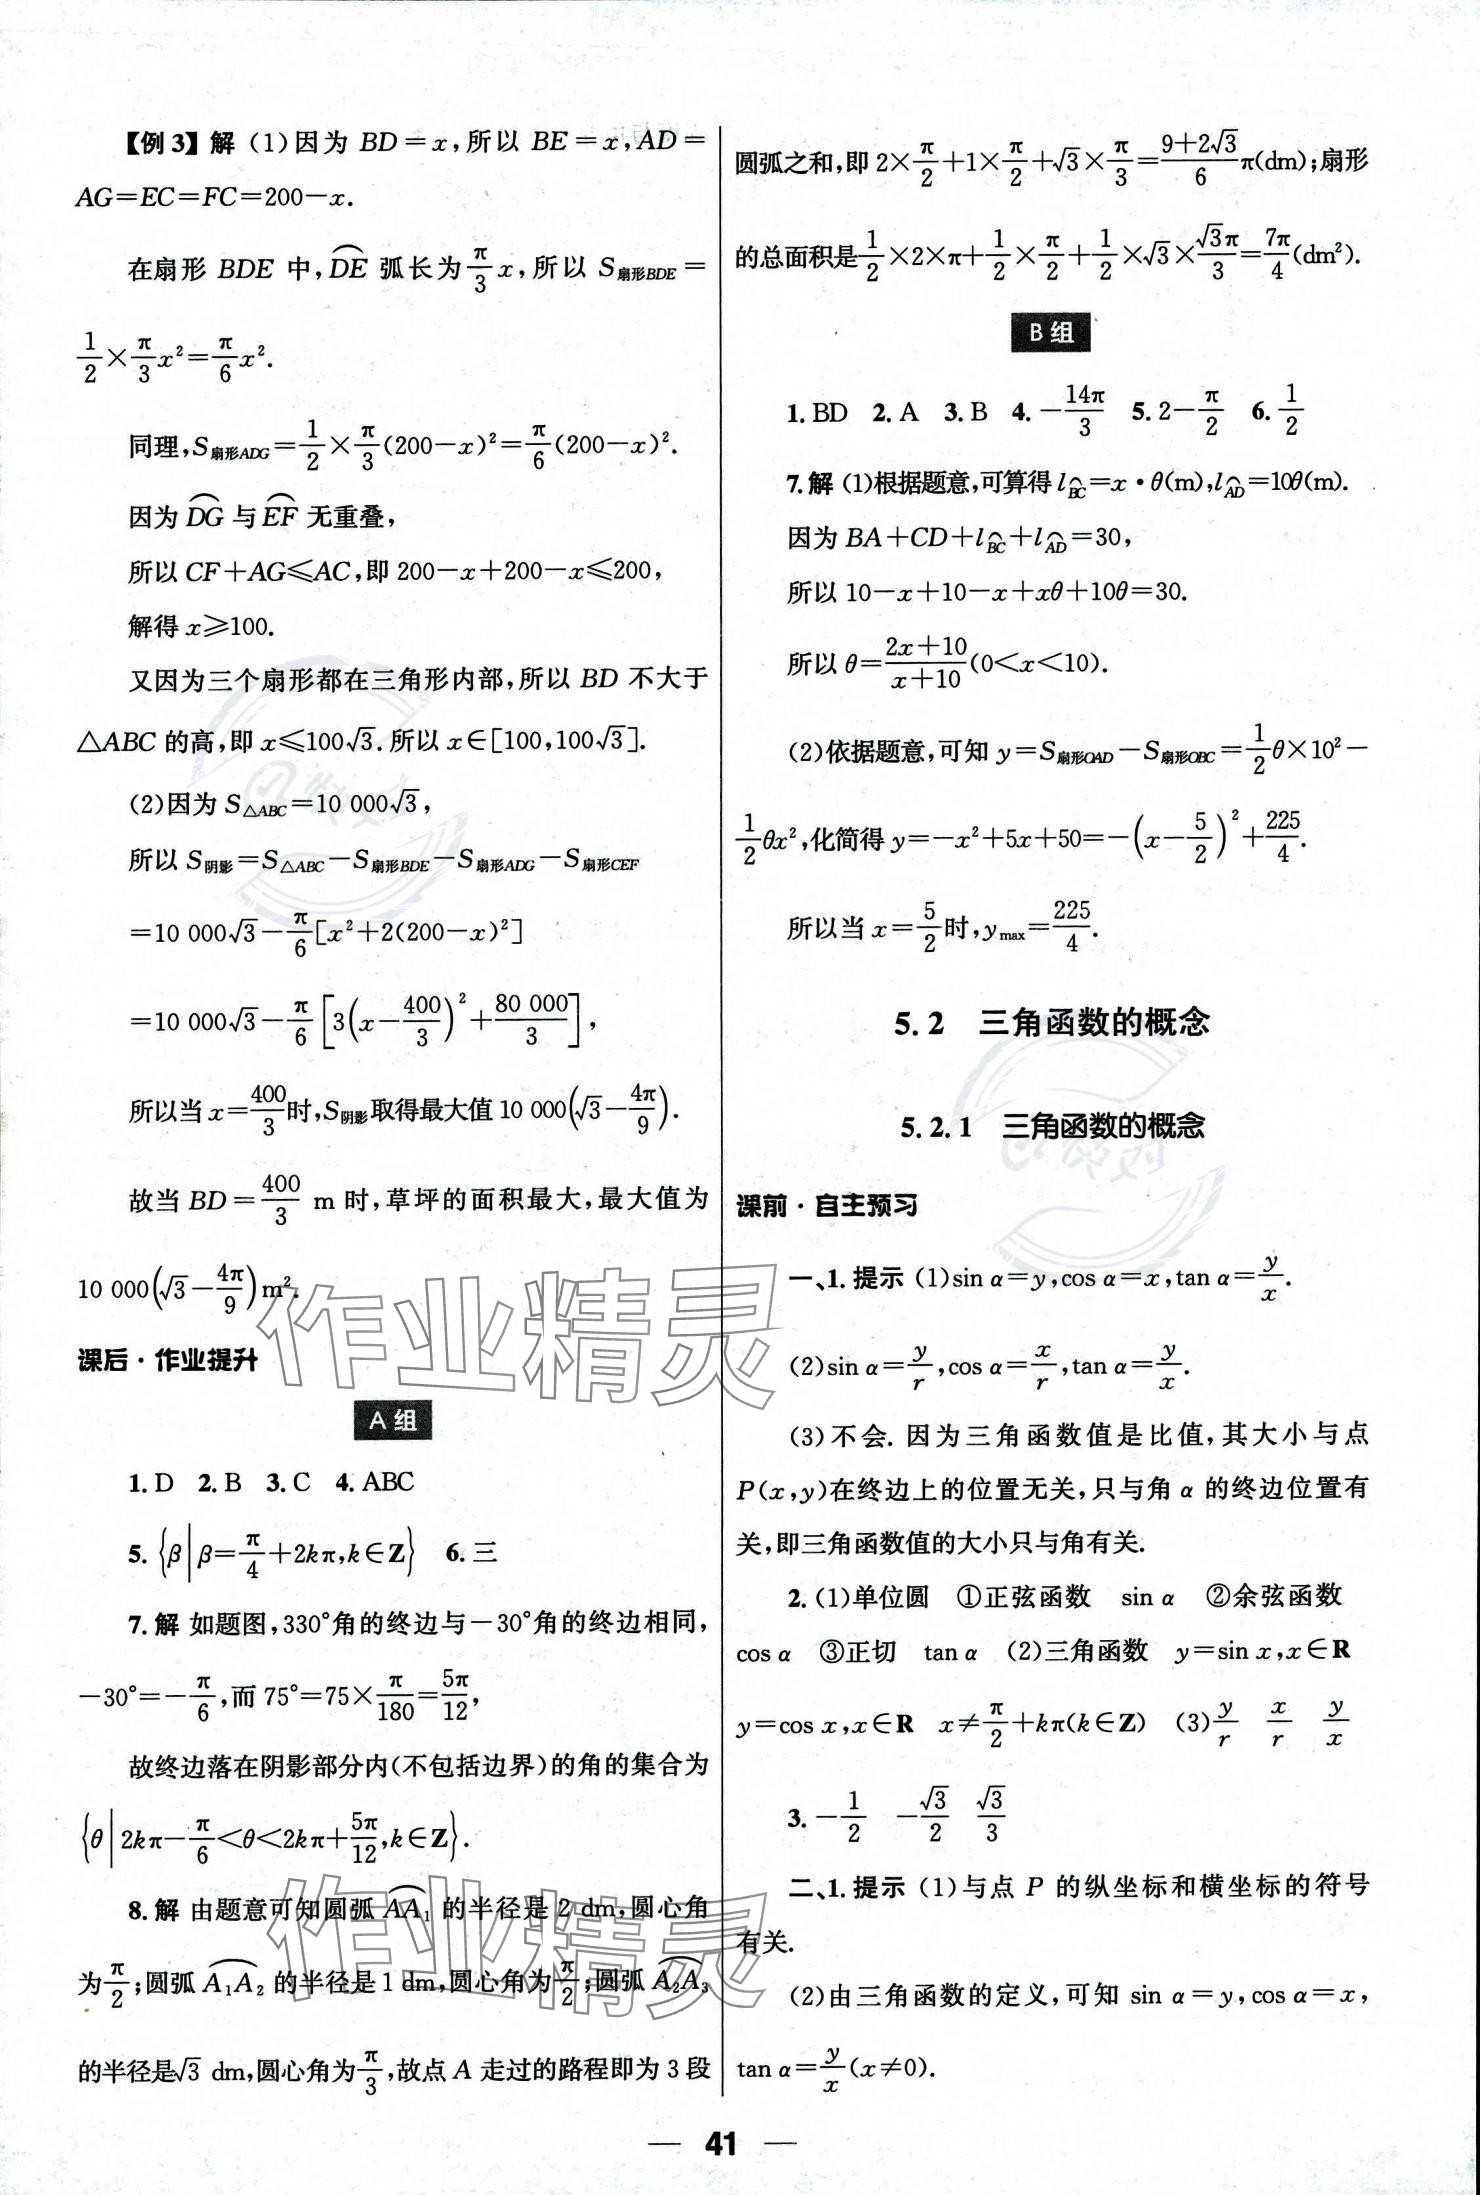 【例3】解 (1)因为 BD=x,所以 BE=x,AD=
AG=EC=FC=200-x.
在扇形 BDE 中,$\overset{\frown}{DE}$ 弧长为$\frac{π}{3}$x,所以 $S_{扇形BDE}$=
$\frac{1}{2}$×$\frac{π}{3}$x²=$\frac{π}{6}$x².
同理,$S_{扇形ADG}$=$\frac{1}{2}$×$\frac{π}{3}$(200-x)²=$\frac{π}{6}$(200-x)².
因为$\overset{\frown}{DG}$与$\overset{\frown}{EF}$无重叠,
所以 CF+AG≤AC,即 200-x+200-x≤200,
解得 x≥100.
又因为三个扇形都在三角形内部,所以 BD 不大于
△ABC 的高,即 x≤100√3.所以 x∈[100,100√3].
(2)因为 $S_{△ABC}$=10 000√3,
所以 $S_{阴影}$=$S_{△ABC}$-$S_{扇形BDE}$-$S_{扇形ADG}$-$S_{扇形CEF}$
=10 000√3-$\frac{π}{6}$[x²+2(200-x)²]
=10 000√3-$\frac{π}{6}$[3(x-$\frac{400}{3}$)²+$\frac{80 000}{3}$],
所以当 x=$\frac{400}{3}$时,$S_{阴影}$取得最大值 10 000(√3-$\frac{4π}{9}$).
故当 BD=$\frac{400}{3}$ m 时,草坪的面积最大,最大值为
10 000(√3-$\frac{4π}{9}$)m².
课后·作业提升
A 组
1. D 2. B 3. C 4. ABC
5. {β|β=$\frac{π}{4}$+2kπ,k∈Z} 6. 三
7. 解 如题图,330°角的终边与-30°角的终边相同,
-30°=-$\frac{π}{6}$,而 75°=75×$\frac{π}{180}$=$\frac{5π}{12}$,
故终边落在阴影部分内(不包括边界)的角的集合为
{θ|2kπ-$\frac{π}{6}$<θ<2kπ+$\frac{5π}{12}$,k∈Z}.
8. 解 由题意可知圆弧$\overset{\frown}{AA_1}$的半径是 2 dm,圆心角
为$\frac{π}{2}$;圆弧$\overset{\frown}{A_1A_2}$的半径是 1 dm,圆心角为$\frac{π}{2}$;圆弧$\overset{\frown}{A_2A_3}$
的半径是√3 dm,圆心角为$\frac{π}{3}$,故点 A 走过的路程即为 3 段
圆弧之和,即 2×$\frac{π}{2}$+1×$\frac{π}{2}$+√3×$\frac{π}{3}$=$\frac{9+2\sqrt{3}}{6}$π(dm);扇形
的总面积是$\frac{1}{2}$×2×π+$\frac{1}{2}$×$\frac{π}{2}$+$\frac{1}{2}$×√3×$\frac{\sqrt{3}π}{3}$=$\frac{7π}{4}$(dm²).
B 组
1. BD 2. A 3. B 4. -$\frac{14π}{3}$ 5. 2-$\frac{π}{2}$ 6. $\frac{1}{2}$
7. 解 (1)根据题意,可算得 $l_{\overset{\frown}{BC}}$=x·θ(m),$l_{\overset{\frown}{AD}}$=10θ(m).
因为 BA+CD+$l_{\overset{\frown}{BC}}$+$l_{\overset{\frown}{AD}}$=30,
所以 10-x+10-x+xθ+10θ=30.
所以 θ=$\frac{2x+10}{x+10}$(0<x<10).
(2)依据题意,可知 y=$S_{扇形OAD}$-$S_{扇形OBC}$=$\frac{1}{2}$θ×10²-
$\frac{1}{2}$θx²,化简得 y=-x²+5x+50=-(x-$\frac{5}{2}$)²+$\frac{225}{4}$.
所以当 x=$\frac{5}{2}$时,$y_{max}$=$\frac{225}{4}$.
5.2 三角函数的概念
5.2.1 三角函数的概念
课前·自主预习
一、1. 提示 (1)sin α=y,cos α=x,tan α=$\frac{y}{x}$.
(2)sin α=$\frac{y}{r}$,cos α=$\frac{x}{r}$,tan α=$\frac{y}{x}$.
(3)不会. 因为三角函数值是比值,其大小与点
P(x,y)在终边上的位置无关,只与角 α 的终边位置有
关,即三角函数值的大小只与角有关.
2. (1)单位圆 ①正弦函数 sin α ②余弦函数
cos α ③正切 tan α (2)三角函数 y=sin x,x∈R
y=cos x,x∈R x≠$\frac{π}{2}$+kπ(k∈Z) (3)$\frac{y}{r}$ $\frac{x}{r}$ $\frac{y}{x}$
3. -$\frac{1}{2}$ -$\frac{\sqrt{3}}{2}$ $\frac{\sqrt{3}}{3}$
二、1. 提示 (1)与点 P 的纵坐标和横坐标的符号
有关.
(2)由三角函数的定义,可知 sin α=y,cos α=x,
tan α=$\frac{y}{x}$(x≠0).
— 41 —
作业精灵
作业精灵